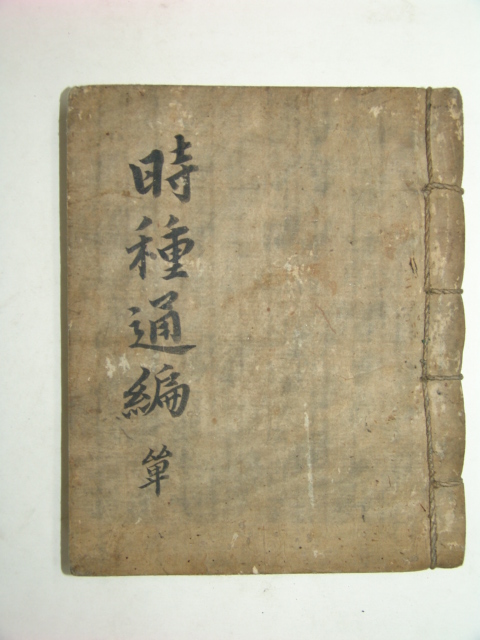 時種通編 箄